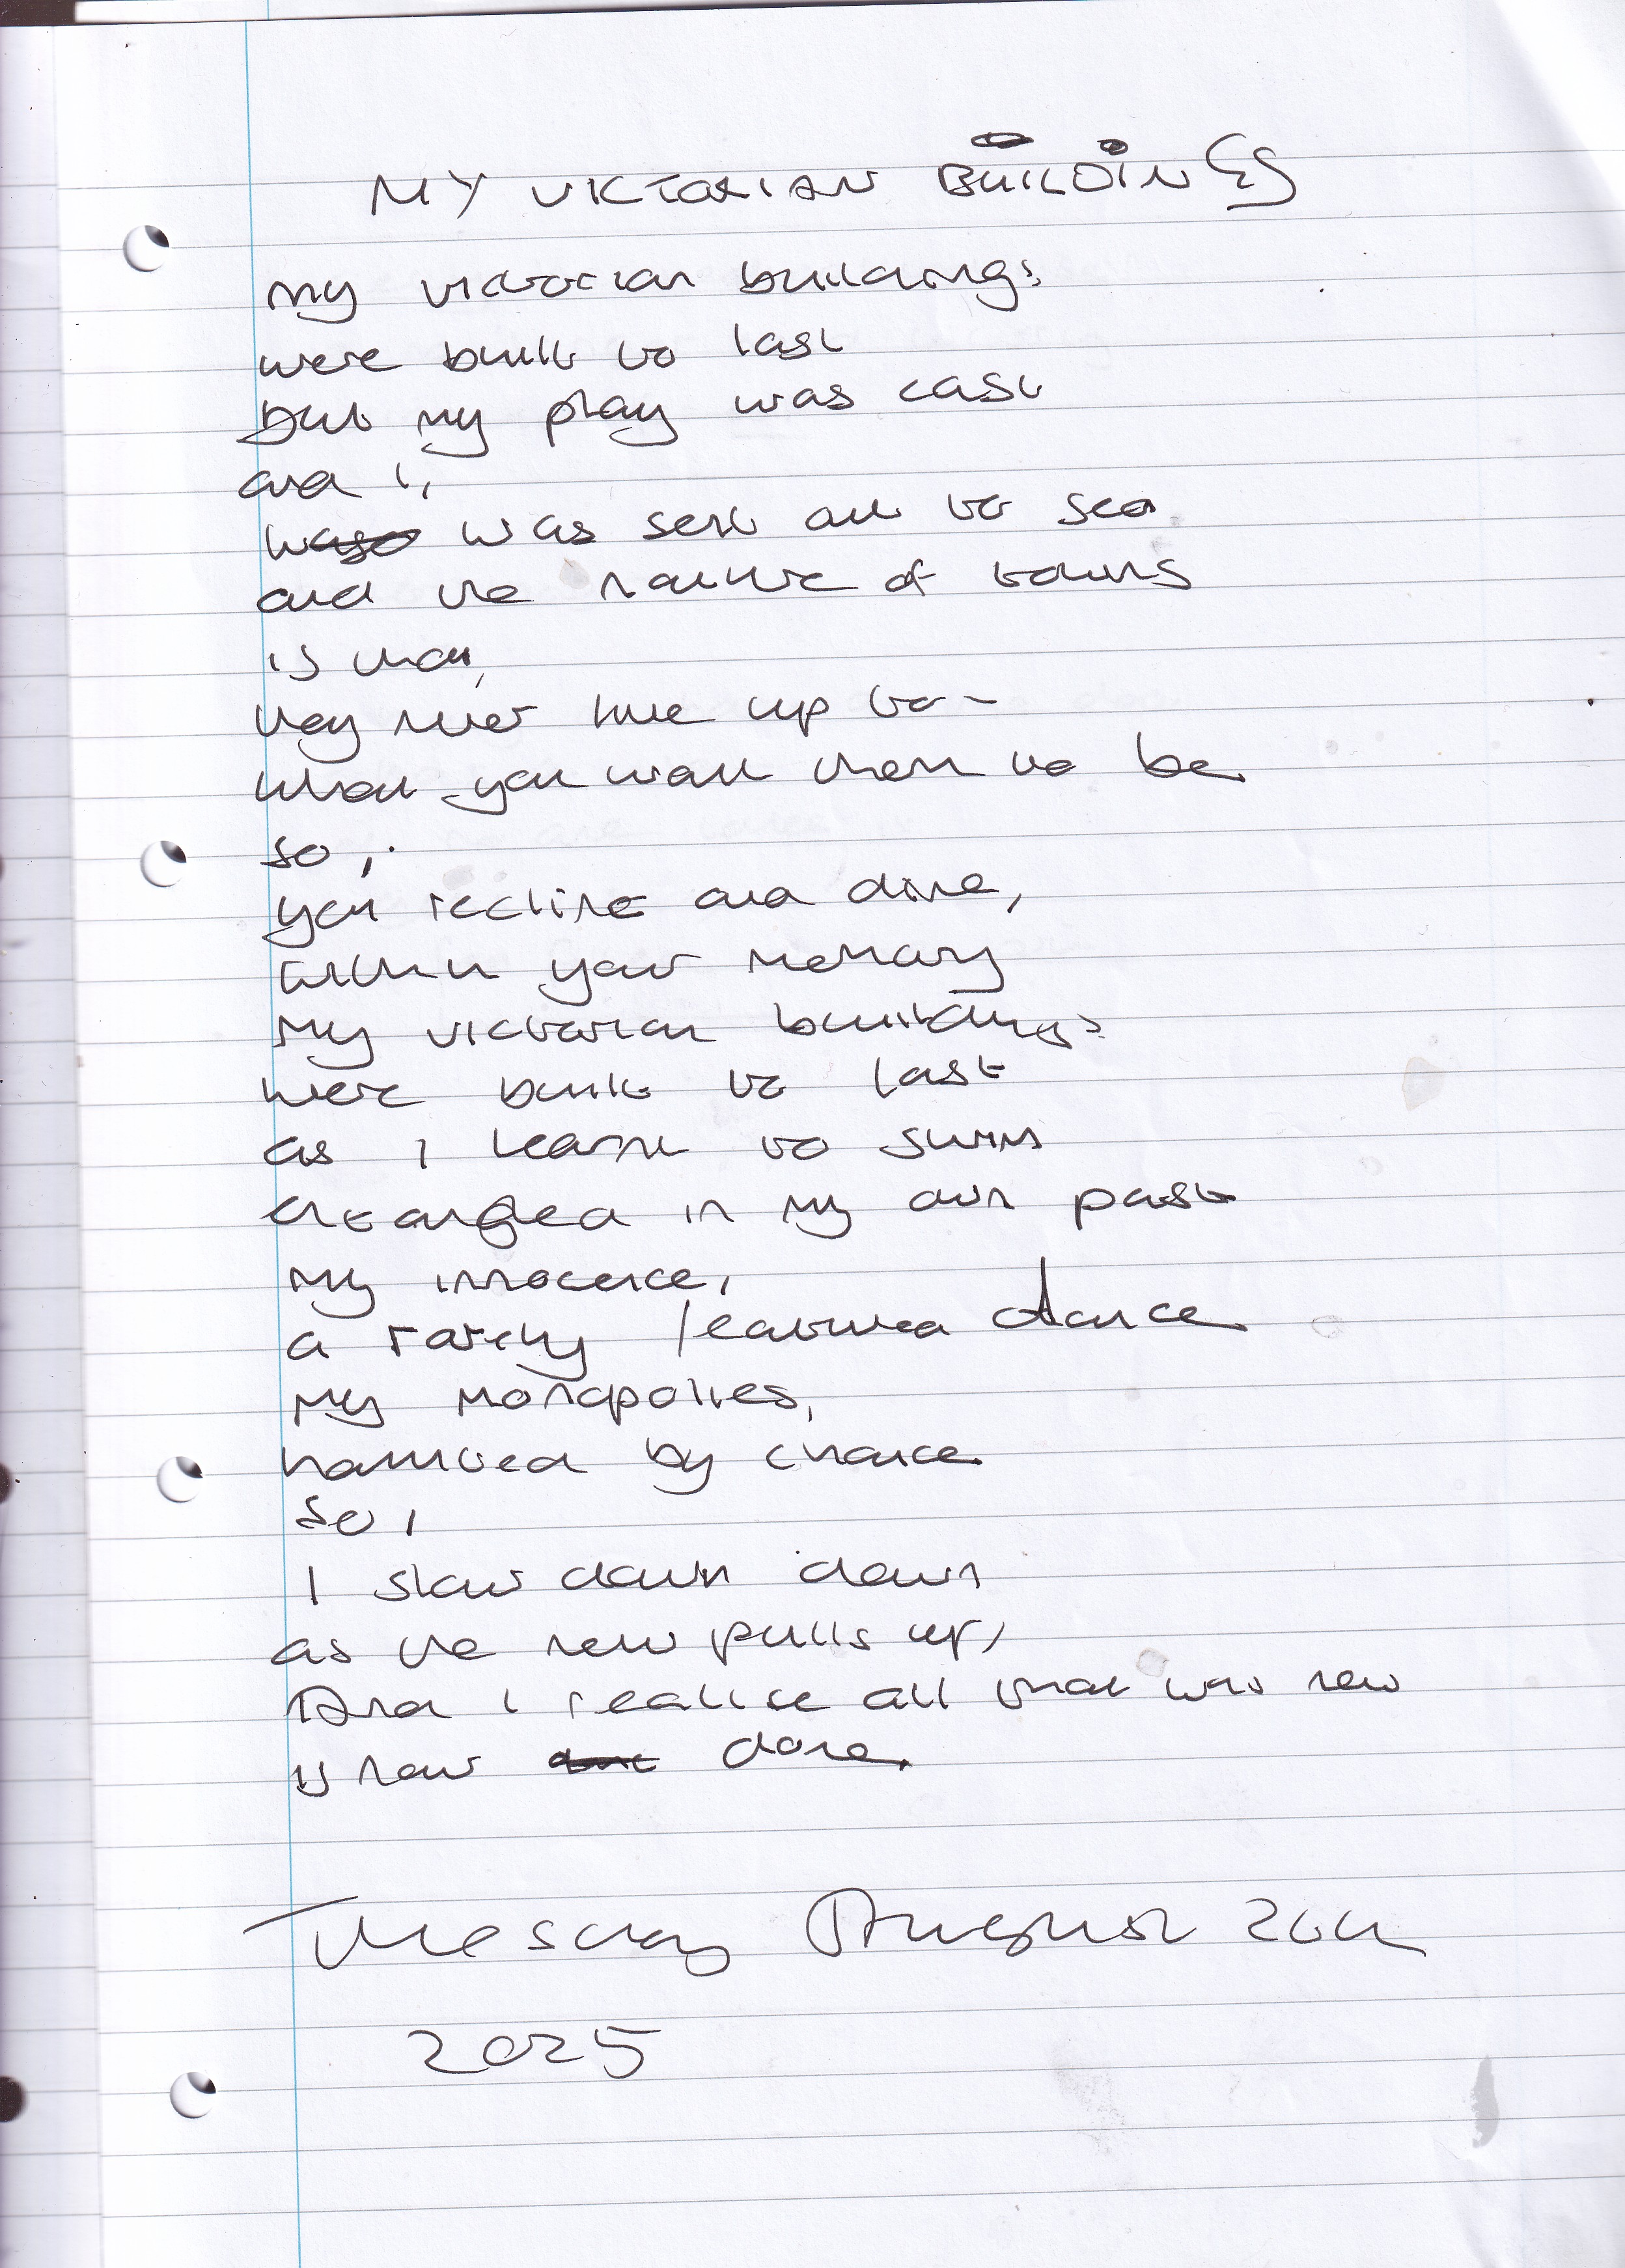 MY VICTORIAN BUILDINGS
my victorian buildings
were built to last
but my play was cast
and i,
was sent out to sea
and the nature of towns
is that,
they never live up to -
what you want them to be.
so,
you recline and dine,
within your memory
my victorian buildings
were built to last
as i learnt to swim
entangled in my own past
my innocence,
a rarely learned dance
my monopolies,
haunted by chance
So,
I slow down down
as the new pulls up,
And i realise all that was new
is now done.
Tuesday August 26th
2025